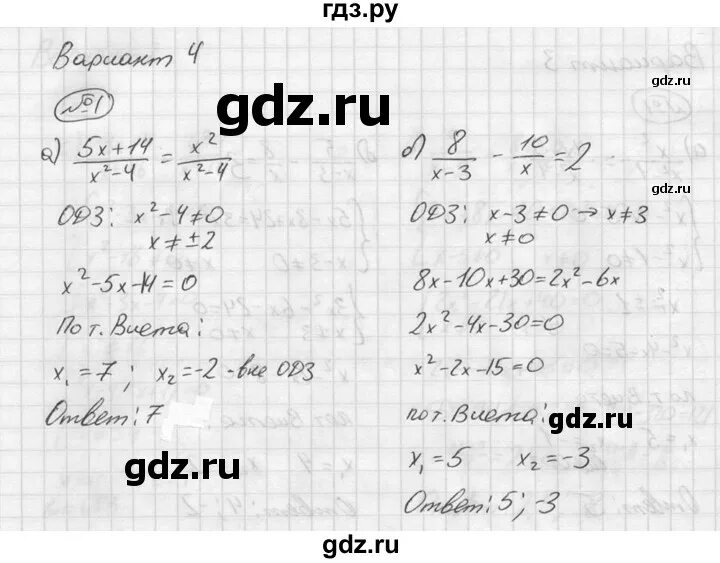 гдз.ру
Вариант 4
№1
а) (5x+14)/(x²-4) = x²/(x²-4)
ОДЗ: x²-4≠0
x≠±2
x²-5x-14=0
По т. Виета:
x₁=7; x₂=-2 - вне ОДЗ
Ответ: 7
б) 8/(x-3) - 10/x = 2
ОДЗ: x-3≠0 → x≠3
x≠0
8x-10x+30=2x²-6x
2x²-4x-30=0
x²-2x-15=0
по т. Виета:
x₁=5 x₂=-3
Ответ: 5; -3
gdz.ru
gdz.ru
gdz.ru
gdz.ru
gdz.ru
gdz.ru